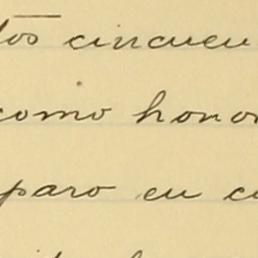 los cincuen
como honor
paro en c